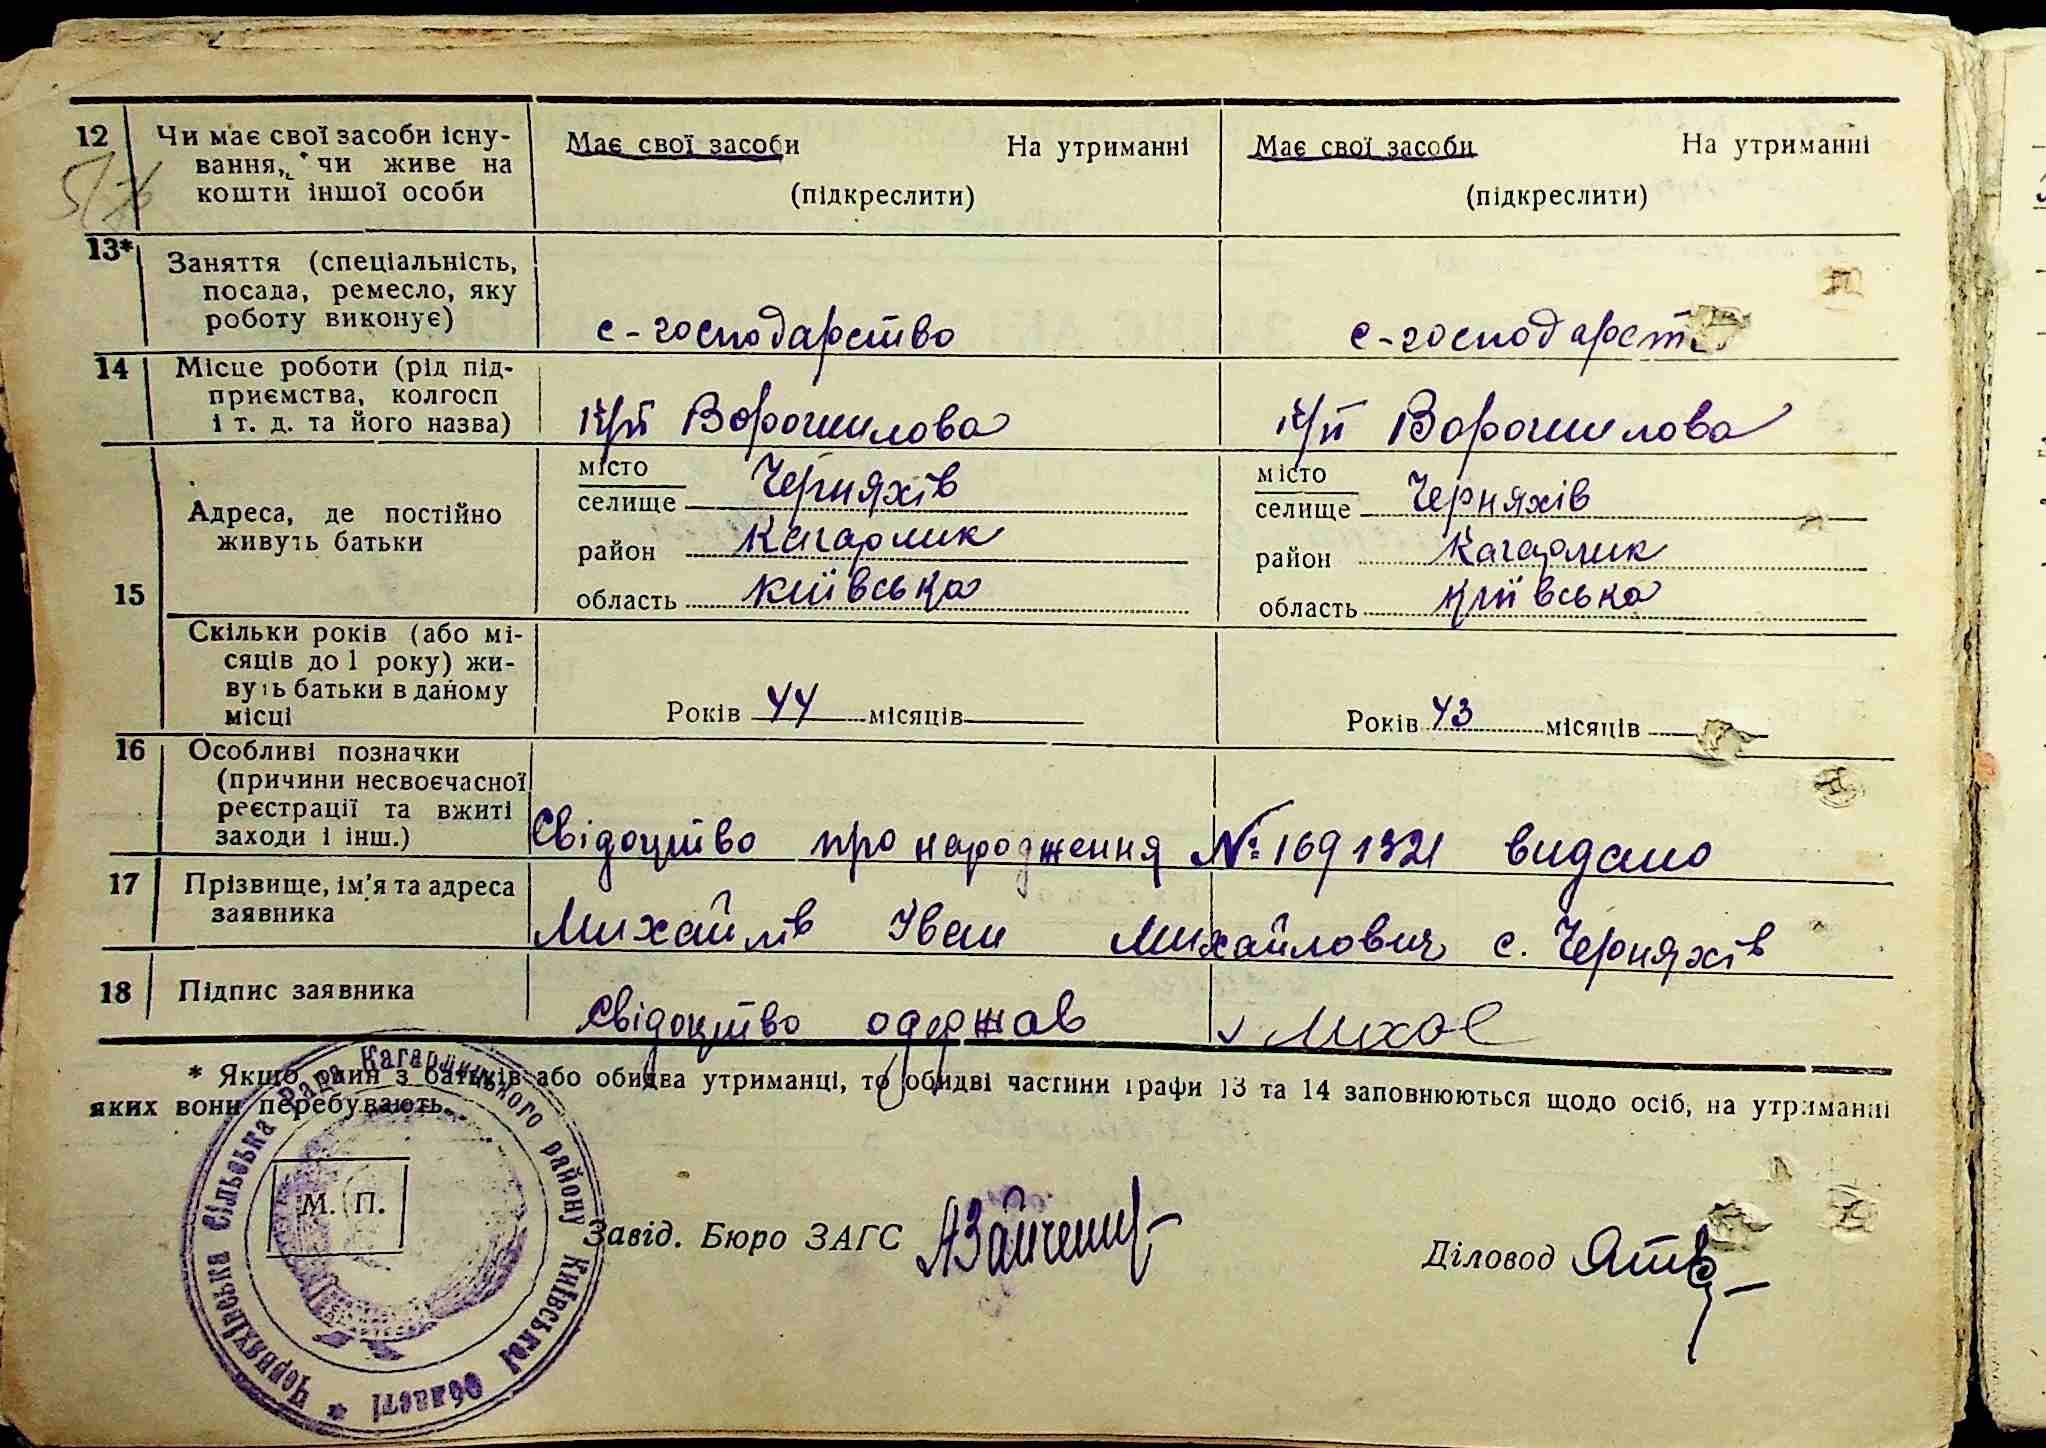 12 Чи має свої засоби існу- Має свої засоби На утриманні Має свої засоби На утриманні
вання, чи живе на
кошти іншої особи (підкреслити) (підкреслити)
13* Заняття (спеціальність,
посада, ремесло, яку
роботу виконує) с-господарство с-господарст
14 Місце роботи (рід під-
приємства, колгосп
і т. д. та його назва) к/п Ворошилова к/п Ворошилова
15 Адреса, де постійно
живуть батьки
місто
селище Черняхів
район Кагарлик
область Київська
місто
селище Черняхів
район Кагарлик
область Київська
Скільки років (або мі-
сяців до 1 року) жи-
вуть батьки в даному
місці Років 44 місяців Років 43 місяців
16 Особливі позначки
(причини несвоєчасної
реєстрації та вжиті
заходи і інш.) Свідоцтво про народження № 1691321 видано
17 Прізвище, ім'я та адреса
заявника Михайлів Іван Михайлович с. Черняхів
18 Підпис заявника Свідоцтво одержав
* Якщо один з батьків або обидва утриманці, то обидві частини графи 13 та 14 заповнюються щодо осіб, на утриманні
яких вони перебувають.
Черняхівська Сільська Рада Кагарлицького району Київської Області *
М. П.
Завід. Бюро ЗАГС
Діловод